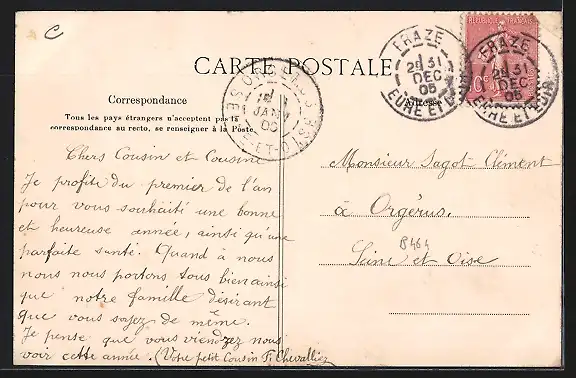 C
CARTE POSTALE
Correspondance
Tous les pays étrangers n'acceptent pas la
correspondance au recto, se renseigner à la Poste.
Adresse
REPUBLIQUE FRANÇAISE
FRAZE
31
DEC
05
EURE ET LOIR
FRAZE
31
DEC
05
EURE ET LOIR
JANV
ET-O
Chers Cousin et Cousine
Je profite du premier de l'an
pour vous souhaité une bonne
et heureuse année, ainsi qu'une
parfaite santé. Quand à nous
nous nous portons tous bien ainsi
que notre famille désirant
que vous soyez de même.
Je pense que vous viendrez nous
voir cette année. (Votre petit Cousin F. Chevallier
Monsieur Sagot Clément
à Orgérus.
B464
Seine et Oise